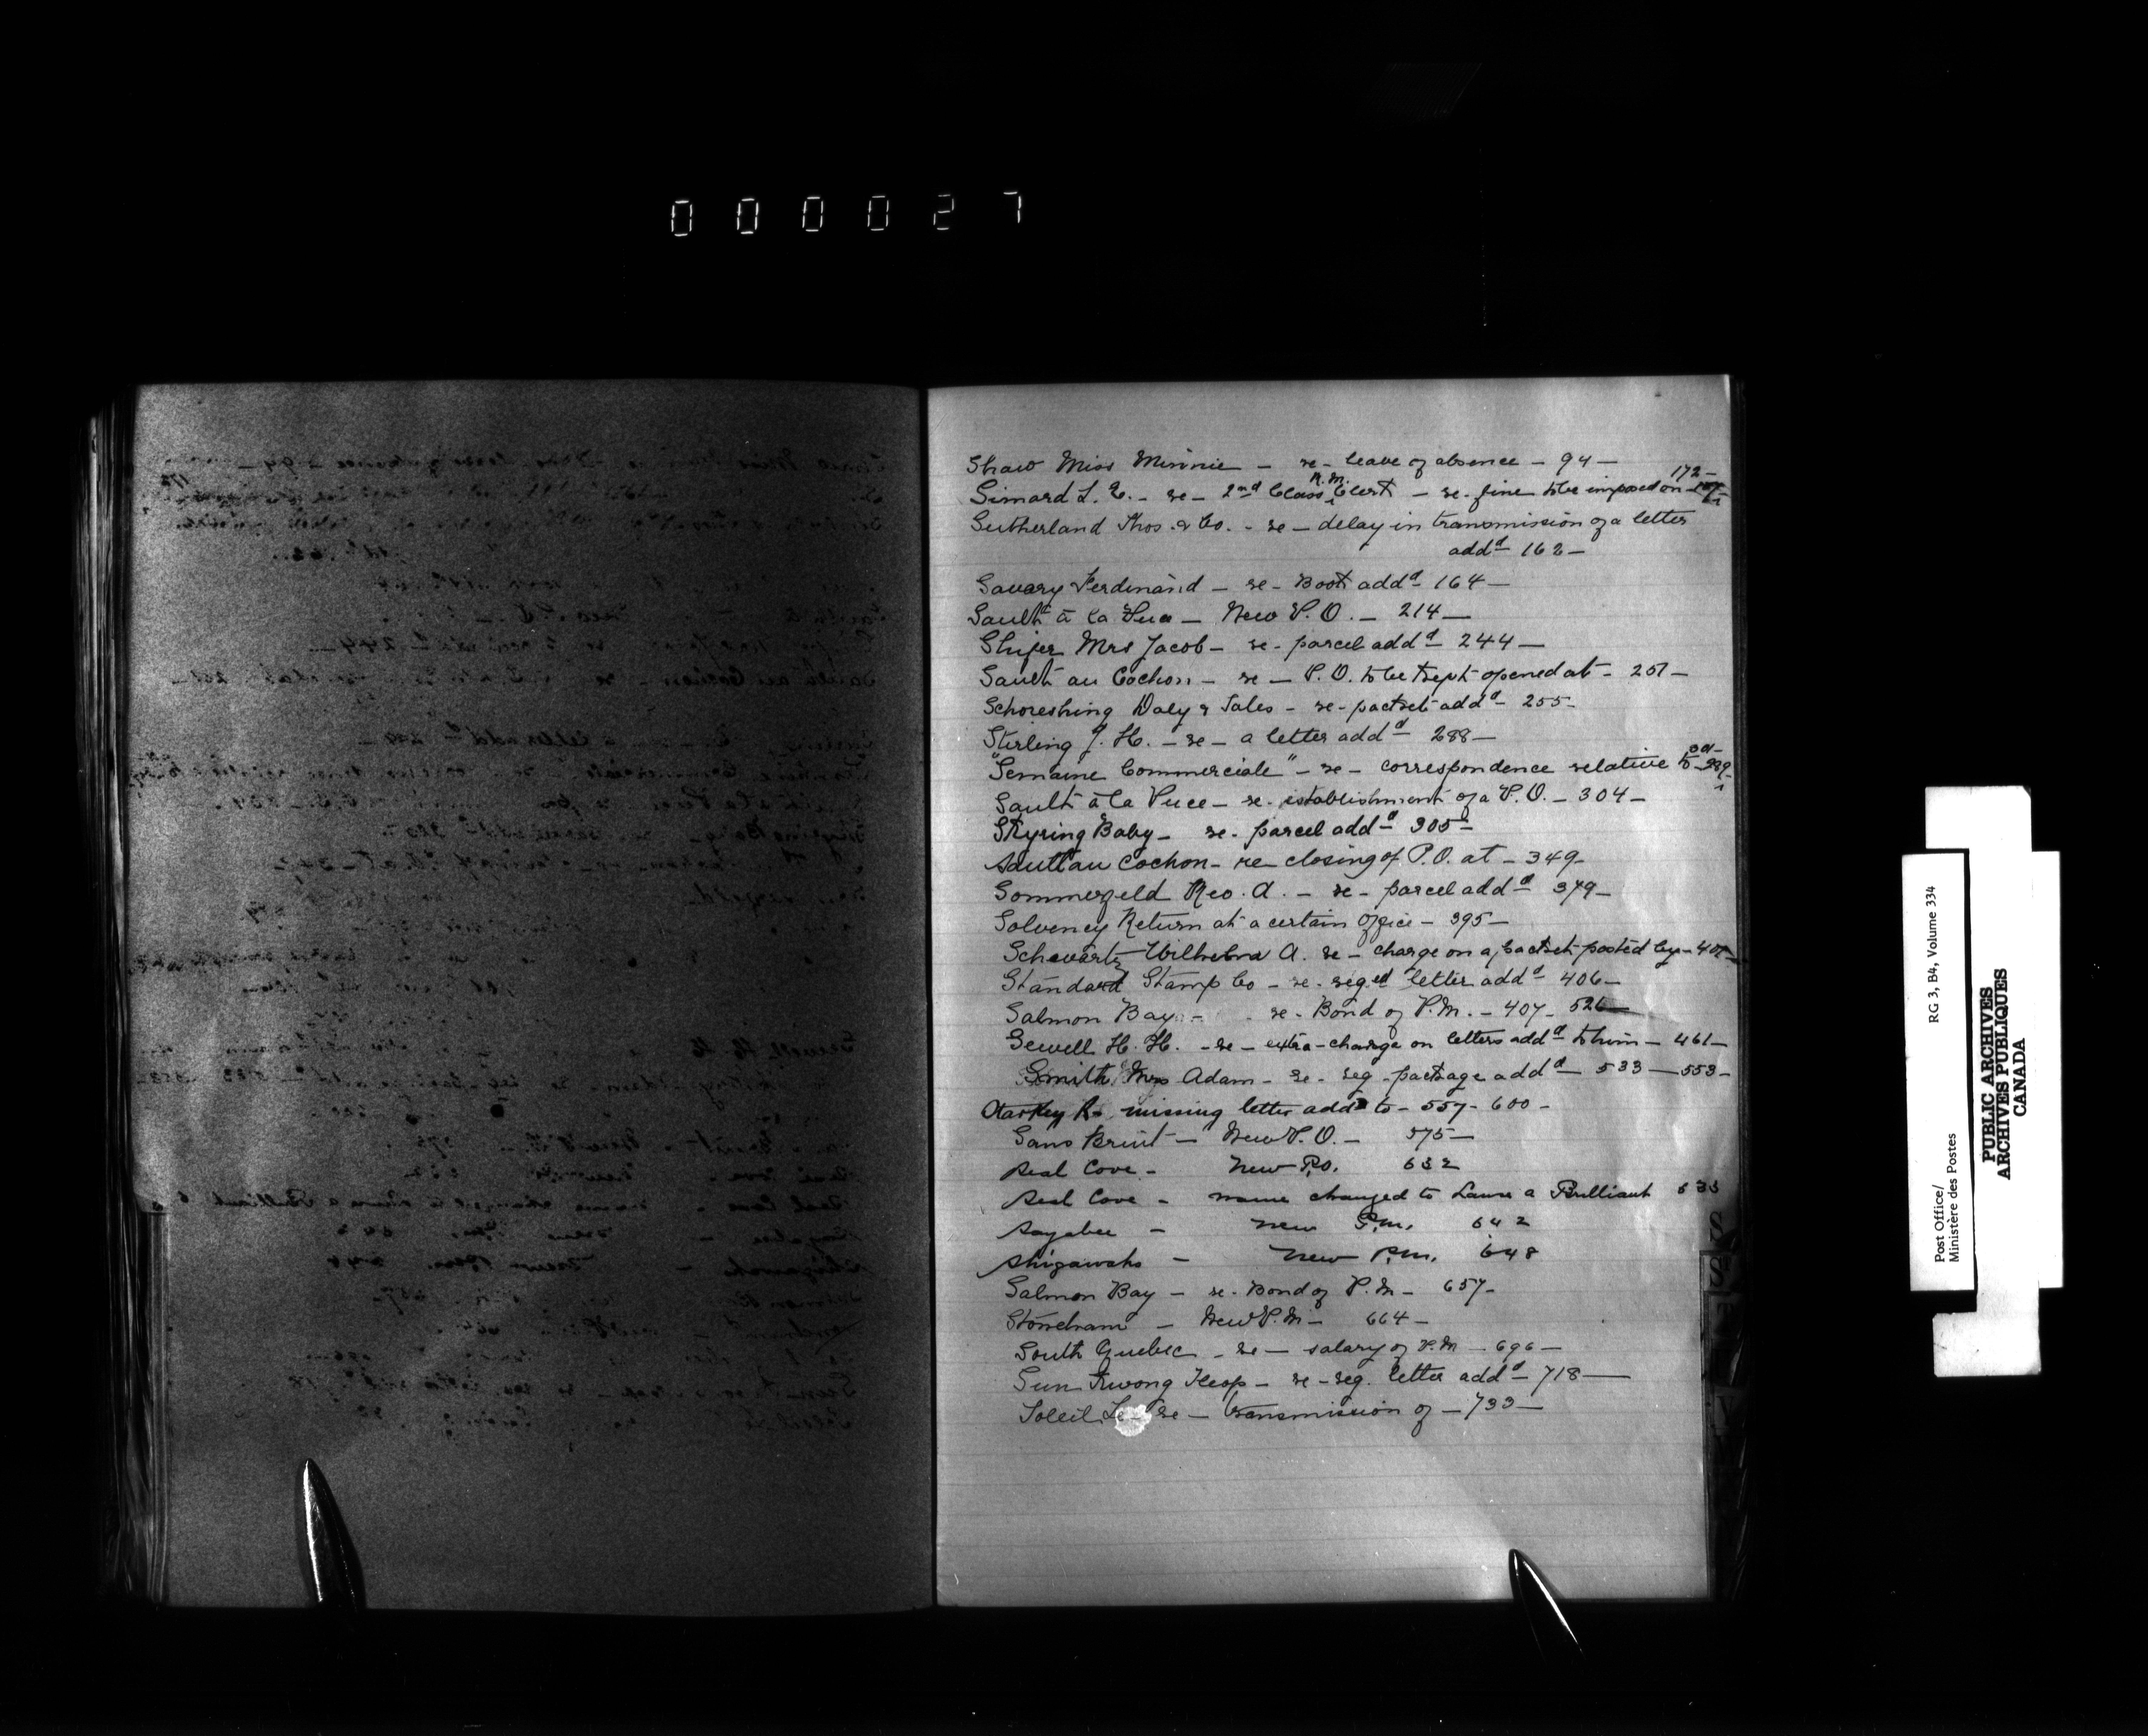 000027
Shaw Miss Minnie - re - leave of absence - 94 -
172 -
R. M.
Simard L. E. - re - 2nd Class Clerk - re - fine to be imposed on
Sutherland Thos. & Co. - re - delay in transmission of a letter
addd 162 -
Savary Ferdinand - re - Book addd 164 -
Sault à la Puce - New P. O. - 214 -
Mrs Jacob - re - parcel addd 244 -
Sault au Cochon - re - P. O. to be kept opened at - 251 -
Daly & Sales - re - packet addd - 255 -
Stirling J. H. - re - a letter addd 288 -
301 -
"Semaine Commerciale" - re - correspondence relative to - 289 -
Sault à la Puce - re - establishment of a P. O. - 304 -
Skyring Baby - re - parcel addd 305 -
Sault au Cochon - re closing of P. O. at - 349 -
Sommerfeld Geo. A. - re - parcel addd 379 -
Solvency Return at a certain office - 395 -
Schwartz A. re - charge on a packet posted by -
Standard Stamp Co - re - reged letter addd 406 -
Salmon Bay - re - Bond of P. M. - 407 - 526
Sewell H. H. - re - extra - charge on letters addd to him - 461 -
Smith Mrs Adam - re - reg - package addd - 533 - 553 -
Starkey R - missing letter addd to - 557 - 600 -
Sans Bruit - New P. O. - 575 -
Seal Cove - New P.O. 632
Seal Cove - name changed to Lanse a Brilliant 633
Sayabec - New P.M. 642
Shigawake - New P.M. 648
Salmon Bay - re - Bond of P. M - 657 -
Stoneham - New P. M - 664 -
South Quebec - re - salary of P. M - 696 -
Sun Kwong - re - reg. letter addd - 718 -
Soleil Le - re - transmission of - 733 -
S
S
V
Post Office/
Ministère des Postes
RG 3, B4, Volume 334
PUBLIC ARCHIVES
ARCHIVES PUBLIQUES
CANADA